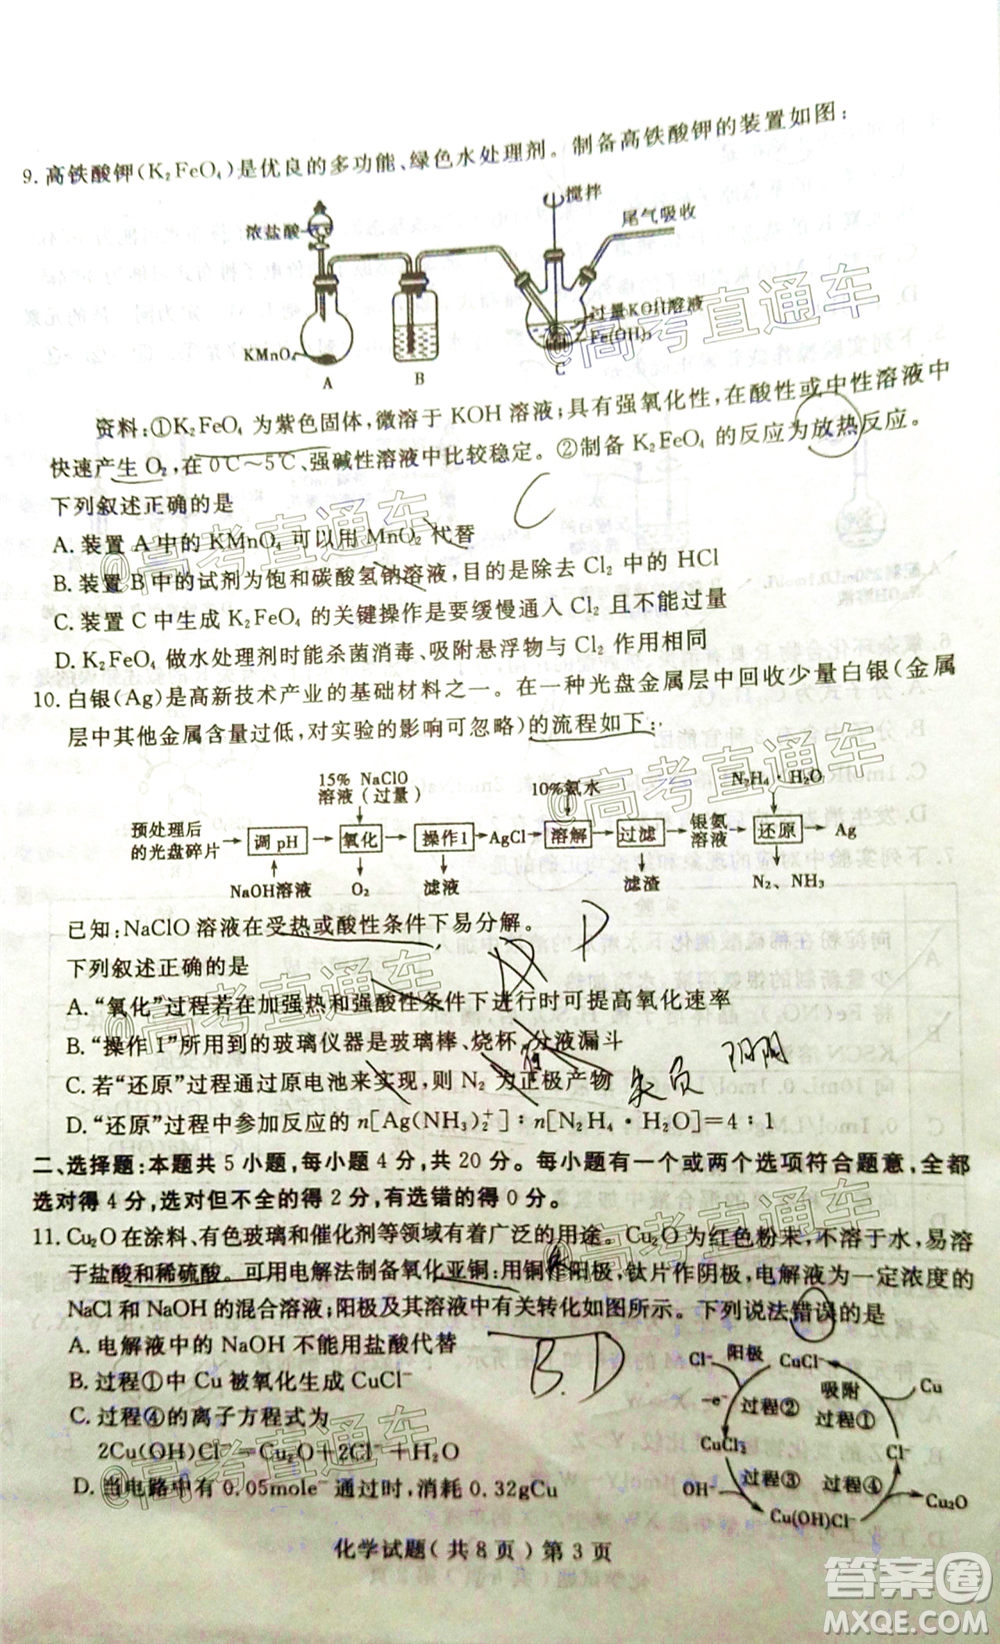 9. 高铁酸钾(K₂FeO₄)是优良的多功能、绿色水处理剂。制备高铁酸钾的装置如图:
搅拌
浓盐酸
尾气吸收
过量KOH溶液
Fe(OH)₃
KMnO₄
A
B
C
资料:①K₂FeO₄ 为紫色固体,微溶于 KOH 溶液;具有强氧化性,在酸性或中性溶液中
快速产生 O₂,在 0℃~5℃、强碱性溶液中比较稳定。②制备 K₂FeO₄ 的反应为放热反应。
下列叙述正确的是
C
A. 装置 A 中的 KMnO₄ 可以用 MnO₂ 代替
B. 装置 B 中的试剂为饱和碳酸氢钠溶液,目的是除去 Cl₂ 中的 HCl
C. 装置 C 中生成 K₂FeO₄ 的关键操作是要缓慢通入 Cl₂ 且不能过量
D. K₂FeO₄ 做水处理剂时能杀菌消毒、吸附悬浮物与 Cl₂ 作用相同
10. 白银(Ag)是高新技术产业的基础材料之一。在一种光盘金属层中回收少量白银(金属
层中其他金属含量过低,对实验的影响可忽略)的流程如下:
15% NaClO
溶液(过量)
10%氨水
N₂H₄·H₂O
预处理后
的光盘碎片
调 pH
氧化
操作1
AgCl
溶解
过滤
银氨
溶液
还原
Ag
NaOH溶液
O₂
滤液
滤渣
N₂、NH₃
已知:NaClO 溶液在受热或酸性条件下易分解。
下列叙述正确的是
D
A.“氧化”过程若在加强热和强酸性条件下进行时可提高氧化速率
B.“操作 1”所用到的玻璃仪器是玻璃棒、烧杯、分液漏斗
C. 若“还原”过程通过原电池来实现,则 N₂ 为正极产物
D.“还原”过程中参加反应的 n[Ag(NH₃)₂⁺]:n[N₂H₄·H₂O]=4:1
二、选择题:本题共 5 小题,每小题 4 分,共 20 分。每小题有一个或两个选项符合题意,全都
选对得 4 分,选对但不全的得 2 分,有选错的得 0 分。
11. Cu₂O 在涂料、有色玻璃和催化剂等领域有着广泛的用途。Cu₂O 为红色粉末,不溶于水,易溶
于盐酸和稀硫酸。可用电解法制备氧化亚铜:用铜作阳极,钛片作阴极,电解液为一定浓度的
NaCl 和 NaOH 的混合溶液;阳极及其溶液中有关转化如图所示。下列说法错误的是
A. 电解液中的 NaOH 不能用盐酸代替
B. 过程①中 Cu 被氧化生成 CuCl⁻
C. 过程④的离子方程式为
2Cu(OH)Cl⁻=Cu₂O+2Cl⁻+H₂O
D. 当电路中有 0.05mole⁻ 通过时,消耗 0.32gCu
B.D
Cl⁻
阳极
CuCl⁻
Cu
吸附
-e⁻
过程②
过程①
CuCl₂
Cl⁻
过程③
过程④
OH⁻
Cu(OH)Cl⁻
Cu₂O
化学试题(共 8 页)第 3 页
@高考直通车
@高考直通车
@高考直通车
@高考直通车
@高考直通车
@高考直通车
答案圈
MXQE.COM